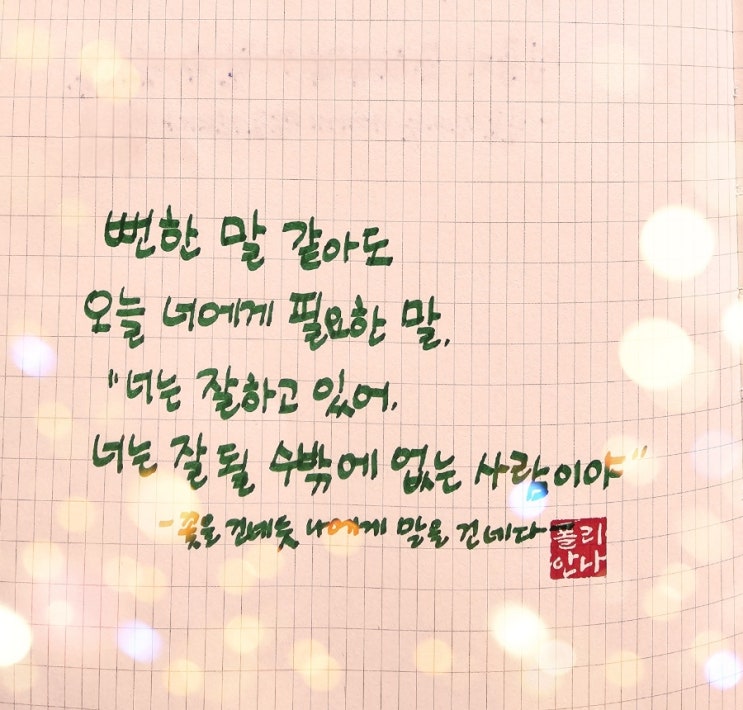 뻔한 말 같아도
오늘 너에게 필요한 말,
"너는 잘하고 있어,
너는 잘 될 수밖에 없는 사람이야"
-꽃을 건네듯 나에게 말을 건네다-
폴리
안나